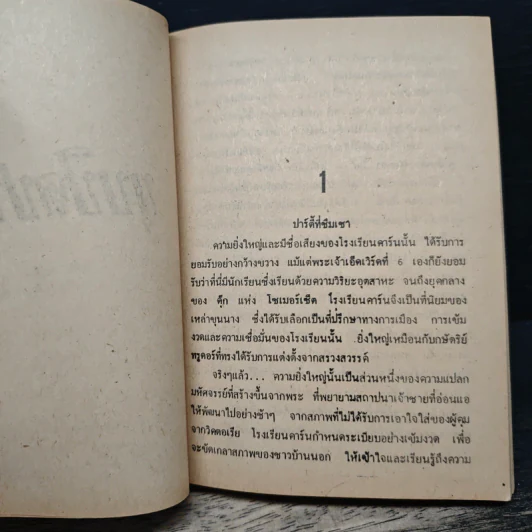 1
ปาร์ตี้ที่ซึมเซา
ความยิ่งใหญ่และมีชื่อเสียงของโรงเรียนคาร์นนั้น ได้รับการ
ยอมรับอย่างกว้างขวาง แม้แต่พระเจ้าเอ็ดเวิร์ดที่ 6 เองก็ยังยอม
รับว่าที่นี่มีนักเรียนซึ่งเรียนด้วยความวิริยะอุตสาหะ จนถึงยุคกลาง
ของ ดุ๊ก แห่ง โซเมอร์เซ็ต โรงเรียนคาร์นจึงเป็นที่นิยมของ
เหล่าขุนนาง ซึ่งได้รับเลือกเป็นที่ปรึกษาทางการเมือง การเข้ม
งวดและความเชื่อมั่นของโรงเรียนนั้น ยิ่งใหญ่เหมือนกับกษัตริย์
ทูดอร์ที่ทรงได้รับการแต่งตั้งจากสรวงสวรรค์
จริงๆแล้ว... ความยิ่งใหญ่นั้นเป็นส่วนหนึ่งของความแปลก
มหัศจรรย์ที่สร้างขึ้นจากพระ ที่พยายามสถาปนาเจ้าชายที่อ่อนแอ
ให้พัฒนาไปอย่างช้าๆ จากสภาพที่ไม่ได้รับการเอาใจใส่ของผู้คุม
จากวิคตอเรีย โรงเรียนคาร์นกำหนดระเบียบอย่างเข้มงวด เพื่อ
จะขัดเกลาสภาพของชาวบ้านนอก ให้เข้าใจและเรียนรู้ถึงความ